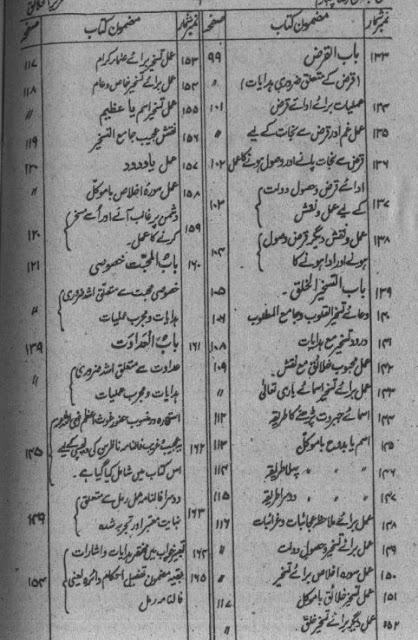 نمبر شمار مضمون کتاب صفحہ
۱۳۳ باب القرض ۹۹
(قرض کے متعلق ضروری ہدایات) 〃
۱۳۴ عملیات برائے ادائے قرض ۱۰۱
۱۳۵ عمل غم اور قرض سے نجات کے لیے 〃
۱۳۶ قرض سے نجات پانے اور وصول ہونے کا عمل ۱۰۲
۱۳۷ ادائے قرض و حصول دولت
کے لیے عمل و نقش ۱۰۳
۱۳۸ عمل و نقش دیگر قرض وصول
ہونے اور ادا ہونے کا ۱۰۴
۱۳۹ باب التسخیر الخلق۔ ۱۰۵
۱۴۰ دعائے تسخیر القلوب وجامع المطلوب ۱۰۷
۱۴۱ درود تسخیر مع ہدایات ۱۰۸
۱۴۲ عمل محبوب خلائق مع نقش۔ ۱۰۹
۱۴۳ عمل برائے تسخیر اسمائے باری تعالیٰ 〃
۱۴۴ اسمائے جبروت پڑھنے کا طریقہ ۱۱۲
۱۴۵ اسم یا بدوح با موکل ۱۱۳
۱۴۶ 〃 〃 پہلا طریقہ ۱۱۴
۱۴۷ 〃 〃 دوسرا طریقہ ۱۱۵
۱۴۸ عمل برائے ملاحظہ عجائبات و غرائبات ۱۱۶
۱۴۹ عمل برائے تسخیر و حصول دولت 〃
۱۵۰ عمل سورہ اخلاص برائے تسخیر 〃
۱۵۱ عمل تسخیر خلائق با موکل ۱۱۷
۱۵۲ عمل دیگر برائے تسخیر خلق۔ 〃
نمبر شمار مضمون کتاب صفحہ
۱۵۳ عمل تسخیر برائے حکام کرام ۱۱۷
۱۵۴ عمل برائے تسخیر خاص و عام ۱۱۸
۱۵۵ عمل تسخیر اسم یا عظیم 〃
۱۵۶ نقش عجیب جامع التسخیر ۱۱۹
۱۵۷ عمل یا ودود ۱۲۰
۱۵۸ عمل سورہ اخلاص با موکل 〃
۱۵۹ دشمن پر غالب آنے اور اسے مسخر
کرنے کا عمل۔ ۱۲۰
۱۶۰ باب المحبت خصوصی ۱۲۱
خصوصی محبت سے متعلق اشد ضروری
ہدایات و مجرب عملیات 〃
۱۶۱ باب العداوت ۱۳۹
عداوت سے متعلق اشد ضروری
ہدایات و مجرب عملیات 〃
استخارہ منسوب حضور غوث اعظم
۱۶۲ عجیب و غریب فالنامہ ناظرین کی دلچسپی کیلئے ۱۴۵
اس کتاب میں شامل کیا گیا ہے۔
۱۶۳ دوسرا فالنامہ عمل رمل سے متعلق
نہایت معتبر اور تجربہ شدہ ۱۴۹
۱۶۴ تعبیر خواب میں مختصر ہدایات و اشارات
۱۶۵ بقیہ مضمون تفصیل احکام دائرہ یعنی ۱۵۴
فالنامہ رمل